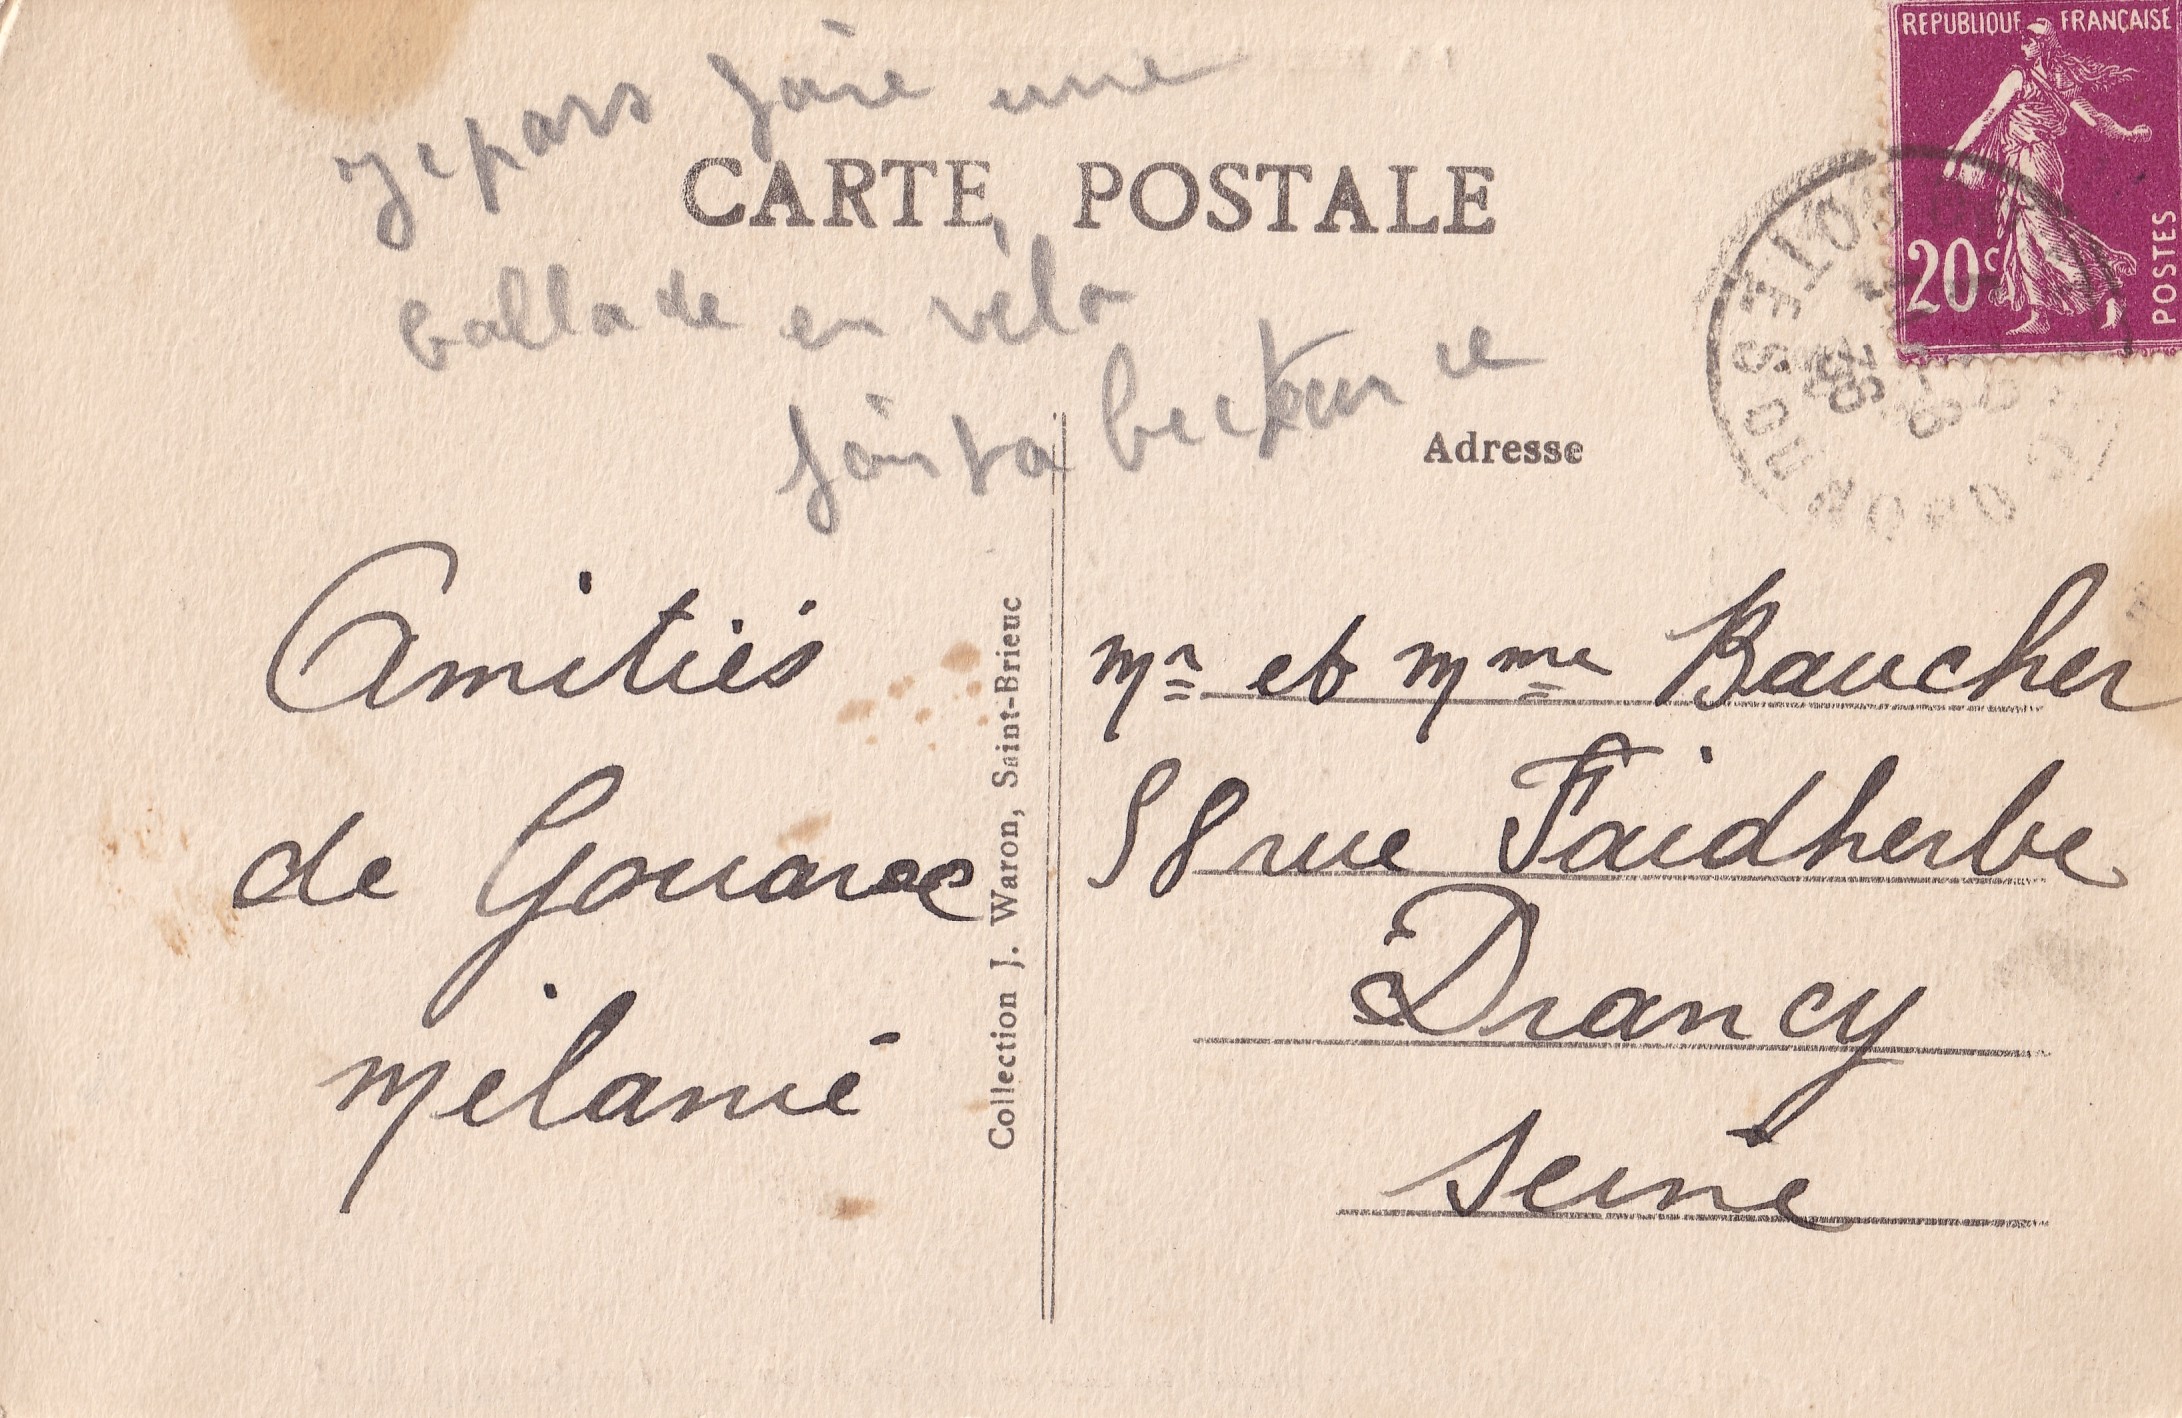 REPUBLIQUE FRANÇAISE
20c
POSTES
Je pars faire une
CARTE POSTALE
ballade en vélo
fais ta
Adresse
Amitiés
de Gouarec
Mélanie
Collection J. Waron, Saint-Brieuc
Mr et Mme Baucher
58 rue Faidherbe
Drancy
Seine